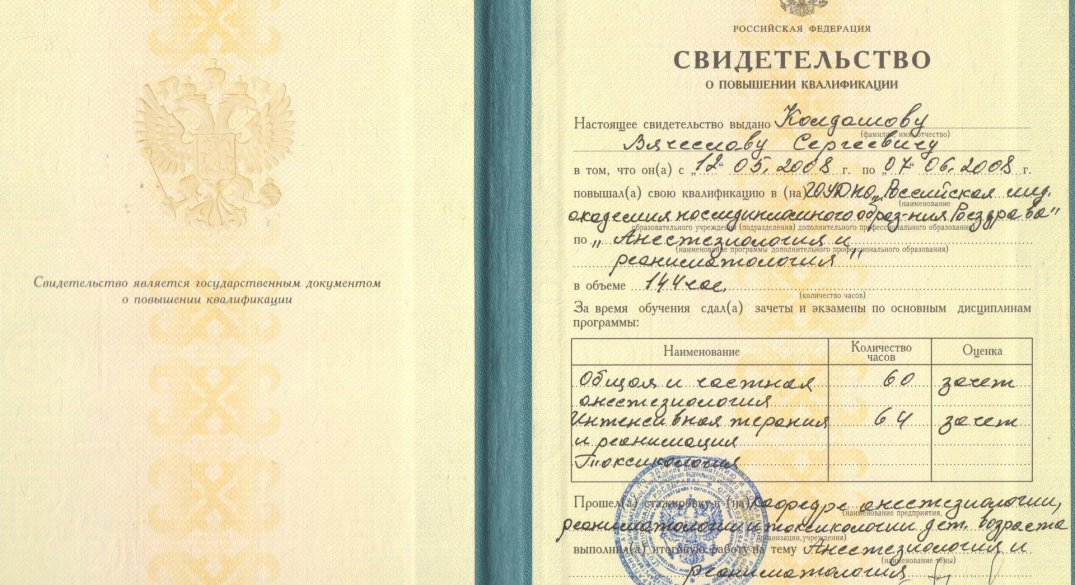 Свидетельство является государственным документом
о повышении квалификации
РОССИЙСКАЯ ФЕДЕРАЦИЯ
СВИДЕТЕЛЬСТВО
О ПОВЫШЕНИИ КВАЛИФИКАЦИИ
Настоящее свидетельство выдано Колдашову
(фамилия, имя, отчество)
Вячеславу Сергеевичу
в том, что он(а) с „12“ 05. 2008 г. по „07“ 06. 2008 г.
повышал(а) свою квалификацию в (на) ГОУ ДПО „Российская мед.
(наименование
академия последипломного образ-ния Росздрава“
образовательного учреждения (подразделения) дополнительного профессионального образования)
по „Анестезиология и
(наименование программы дополнительного профессионального образования)
реаниматология“
в объеме 144 час.
(количество часов)
За время обучения сдал(а) зачеты и экзамены по основным дисциплинам
программы:
Наименование Количество часов Оценка
Общая и частная 60 зачет
анестезиология
Интенсивная терапия 64 зачет
и реанимация
Токсикология
Прошел(а) стажировку в (на) кафедре анестезиологии,
(наименование предприятия,
реаниматологии и токсикологии дет. возраста
организации, учреждения)
выполнил(а) итоговую работу на тему Анестезиология и
(наименование темы)
реаниматология